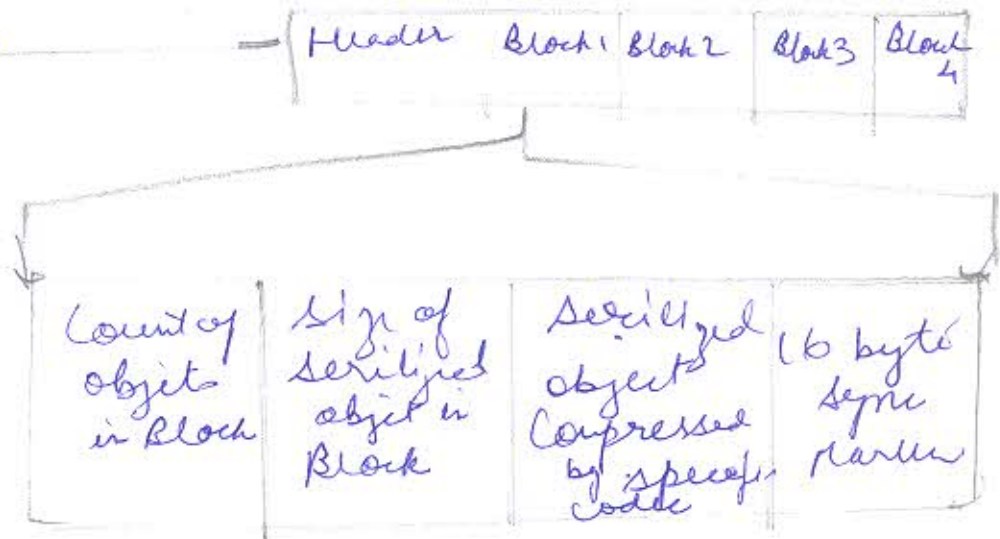 Header Block 1 Block 2 Block 3 Block
4
Count of
objets
in Block
Size of
serilized
objet in
Block
Serilized
objects
Compressed
by specific
codec
16 byte
sync
Marker